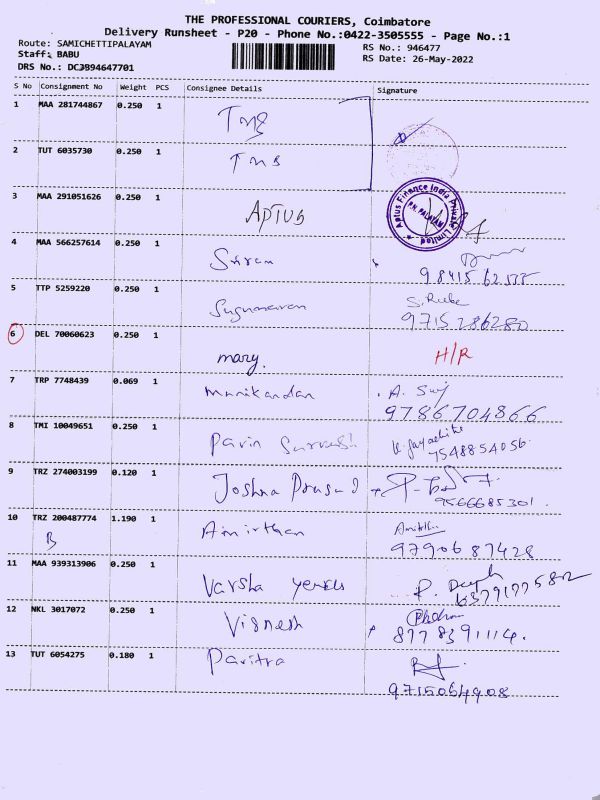 THE PROFESSIONAL COURIERS, Coimbatore
Delivery Runsheet - P20 - Phone No.:0422-3505555 - Page No.:1
Route: SAMICHETTIPALAYAM RS No.: 946477
Staff: BABU RS Date: 26-May-2022
DRS No.: DCJB94647701
S No Consignment No Weight PCS Consignee Details Signature
1 MAA 281744867 0.250 1 TMB
2 TUT 6035730 0.250 1 TMB
3 MAA 291051626 0.250 1 APTUS
Aptus Finance India Private Limited
P.N. PALAYAM
4 MAA 566257614 0.250 1
5 TTP 5259220 0.250 1 Sugumaran
9715286280
6 DEL 70060623 0.250 1 mary. H/R
7 TRP 7748439 0.069 1 Manikandan
9786704866
8 TMI 10049651 0.250 1 Pavin
7548854056.
9 TRZ 274003199 0.120 1 Joshna Prasad
9566685301.
10 TRZ 200487774 1.190 1 Amirthan
B 9790687428
11 MAA 939313906 0.250 1 Varsha
6379177582
12 NKL 3017072 0.250 1 Vignesh
8778391114.
13 TUT 6054275 0.180 1 Pavitra
9715064908